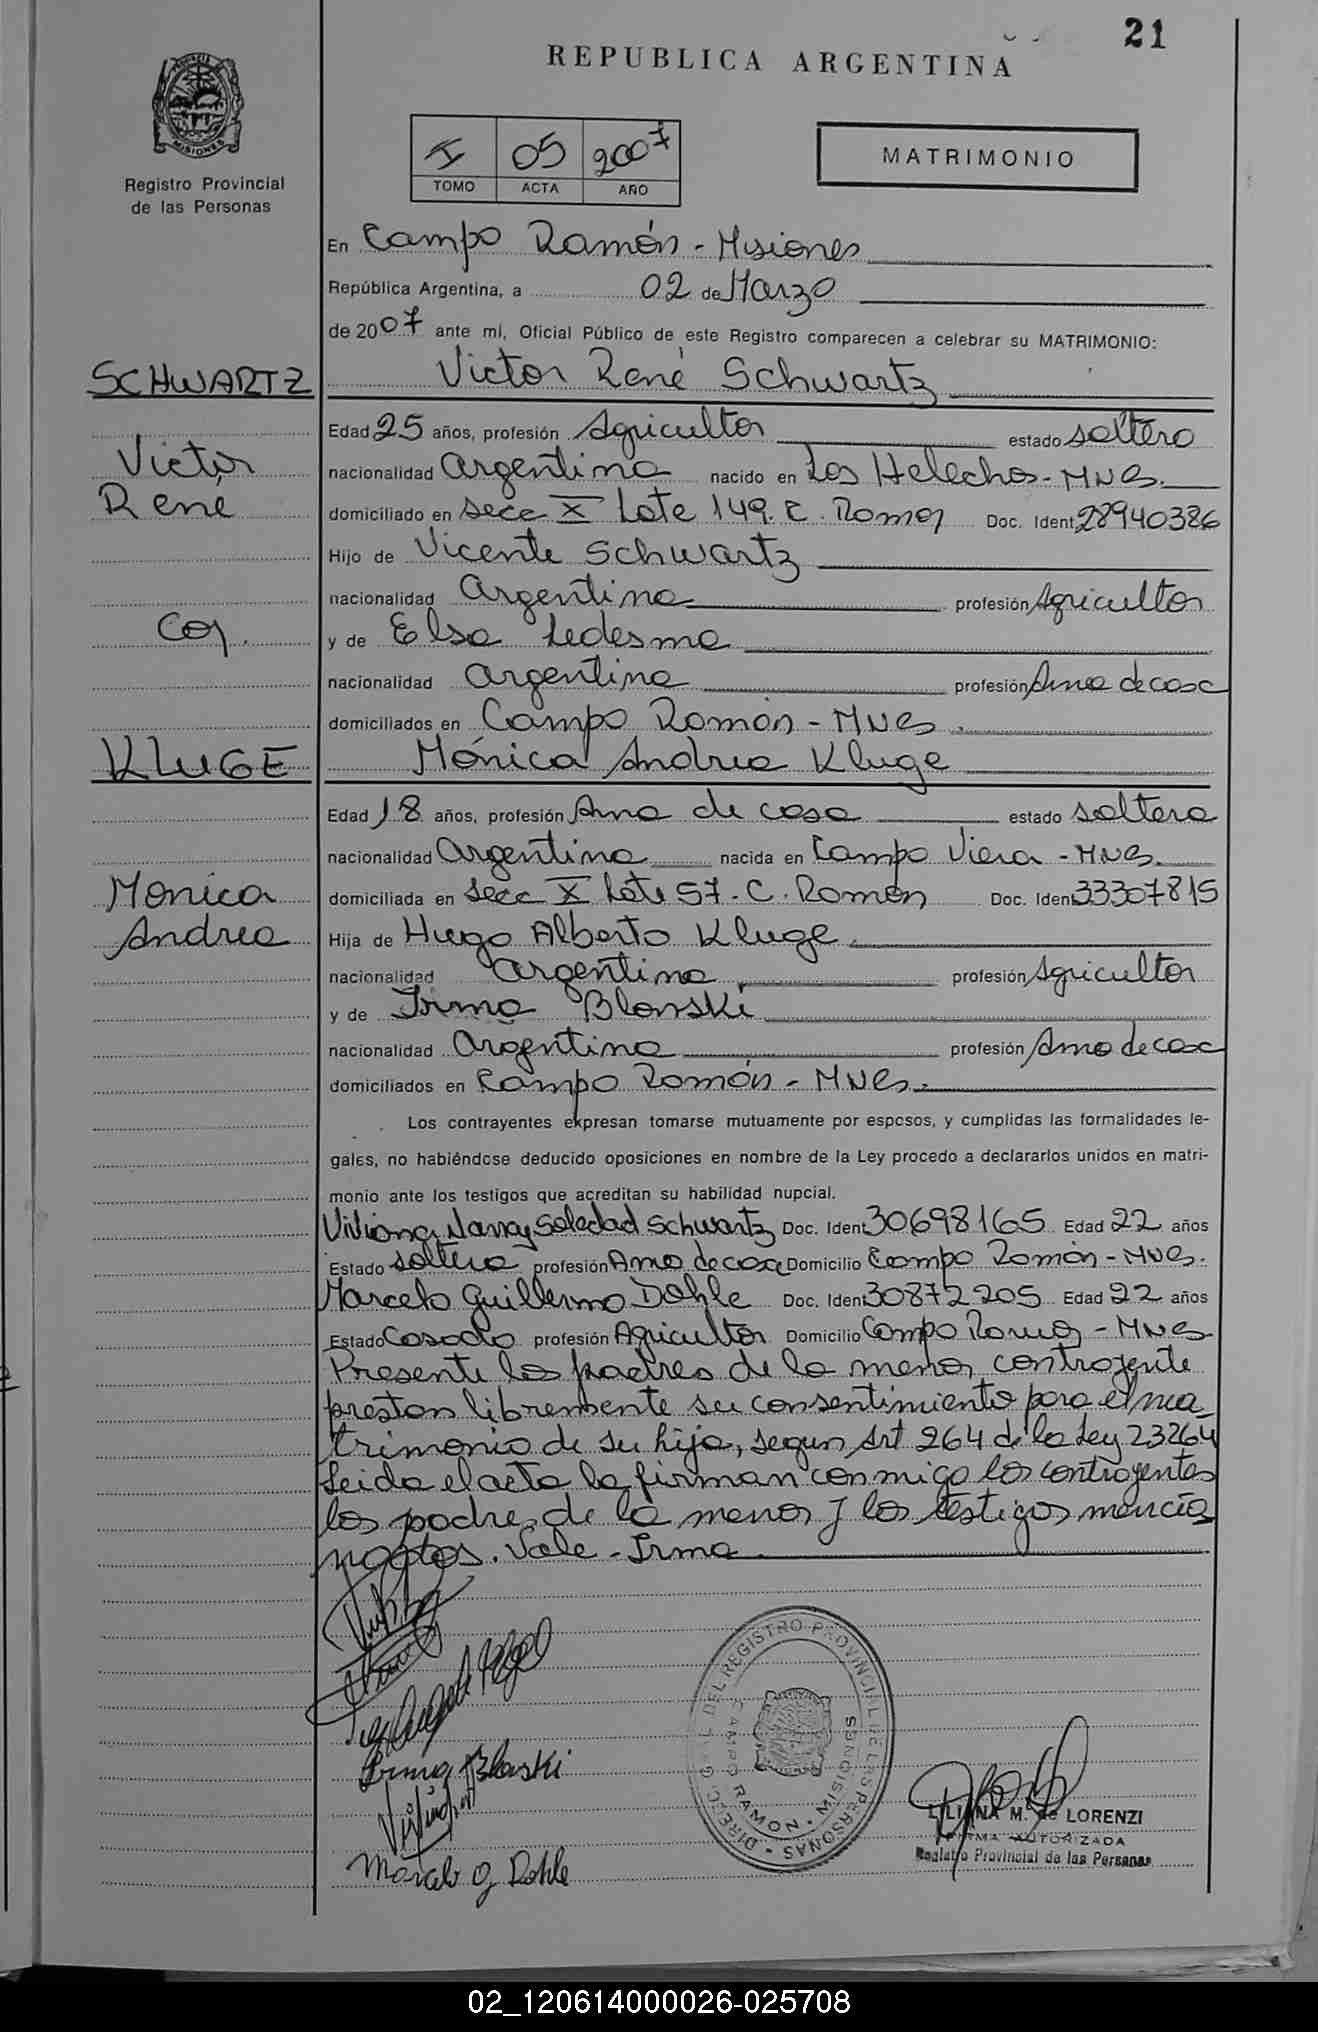 21
REPUBLICA ARGENTINA
MISIONES
Registro Provincial
de las Personas
I 05 2007
TOMO ACTA AÑO
MATRIMONIO
En Campo Ramón - Misiones
República Argentina, a 02 de Marzo
de 2007 ante mí, Oficial Público de este Registro comparecen a celebrar su MATRIMONIO:
SCHWARTZ Victor René Schwartz
Edad 25 años, profesión Agricultor estado soltero
Victor nacionalidad Argentina nacido en Los Helechos - MNES.
René domiciliado en Secc X Lote 149. C. Ramón Doc. Ident. 28940386
Hijo de Vicente Schwartz
nacionalidad Argentina profesión Agricultor
Con. y de Elsa Ledesma
nacionalidad Argentina profesión Ama de casa
domiciliados en Campo Ramón - MNES.
KLUGE Mónica Andrea Kluge
Edad 18 años, profesión Ama de casa estado soltera
nacionalidad Argentina nacida en Campo Viera - MNES.
Monica domiciliada en Secc X Lote 57 - C. Ramón Doc. Ident. 33307815
Andrea Hija de Hugo Alberto Kluge
nacionalidad Argentina profesión Agricultor
y de Irma Blonski
nacionalidad Argentina profesión Ama de casa
domiciliados en Campo Ramón - MNES.
Los contrayentes expresan tomarse mutuamente por esposos, y cumplidas las formalidades le-
gales, no habiéndose deducido oposiciones en nombre de la Ley procedo a declararlos unidos en matri-
monio ante los testigos que acreditan su habilidad nupcial.
Viviana Nancy Soledad Schwartz Doc. Ident. 30698165 Edad 22 años
Estado soltera profesión Ama de casa Domicilio Campo Ramón - MNES.
Marcelo Guillermo Dohle Doc. Ident. 30872205 Edad 22 años
Estado Casado profesión Agricultor Domicilio Campo Ramón - MNES
Presente los padres de la menor contrayente
prestan libremente su consentimiento para el ma-
trimonio de su hija, segun Art 264 de la Ley 23264
Leida el acta la firman conmigo los contrayentes
los padres de la menor y los testigos mencio
nados. Vale - Irma.
Irma Blonski
Marcelo G Dohle
DIREC. GRAL. DEL REGISTRO PROVINCIAL DE LAS PERSONAS
CAMPO RAMON - MISIONES
LILIANA M. de LORENZI
FIRMA AUTORIZADA
Registro Provincial de las Personas
02_120614000026-025708